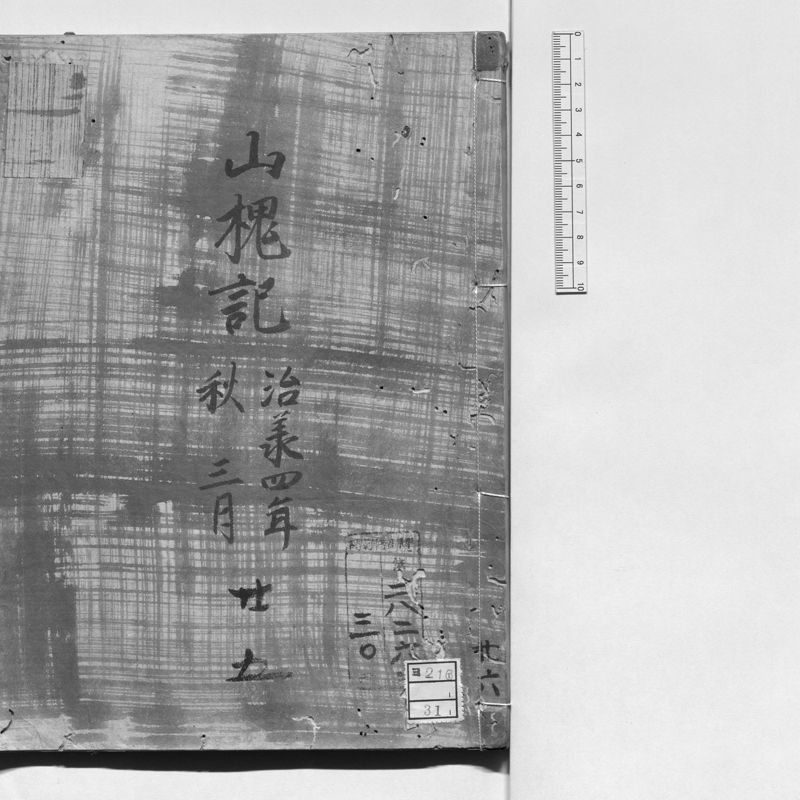 山槐記
治承四年
秋 三月
廿
二八二六
三〇
廿六
ヨ 216
31 1
0 1 2 3 4 5 6 7 8 9 10